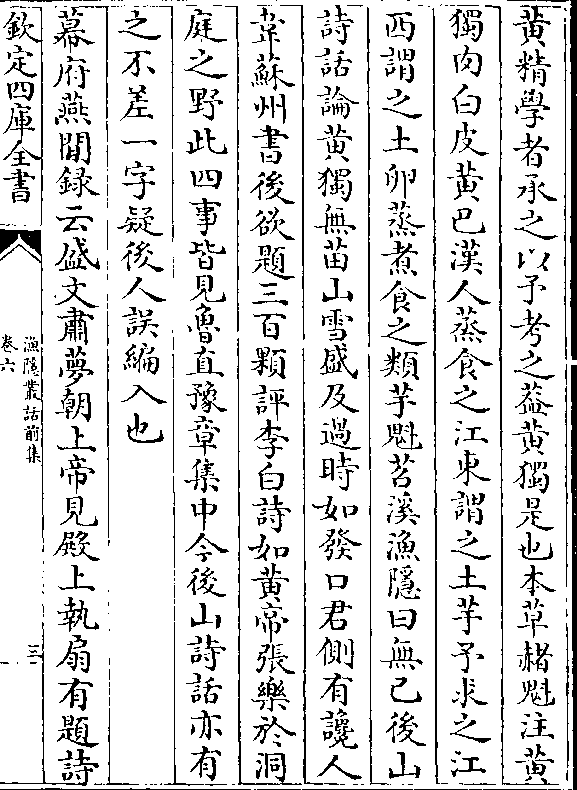 黄精學者承之以予考之葢黄獨是也本草赭魁注黄
獨肉白皮黄巴漢人蒸食之江東謂之土芋予求之江
西謂之土卵蒸煮食之類芋魁苕溪漁隱曰無己後山
詩話論黄獨無苗山雪盛及過時如發口君側有讒人
韋蘇州書後欲題三百顆評李白詩如黄帝張樂於洞
庭之野此四事皆見魯直豫章集中今後山詩話亦有
之不差一字疑後人誤編入也
幕府燕閒録云盛文肅夢朝上帝見殿上執扇有題詩
欽定四庫全書
漁隱叢話前集
卷六
三